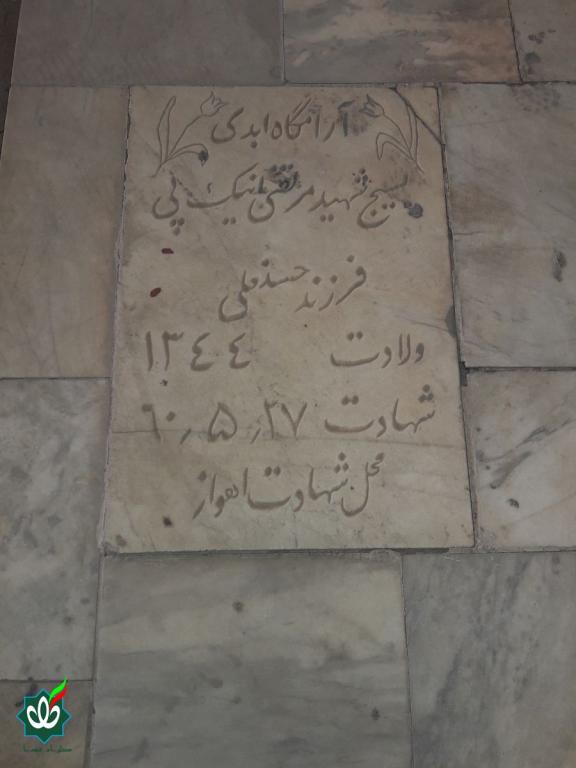 آرامگاه ابدی
بسیج شهید مرتضی نیک پی
فرزند حسنعلی
ولادت ۱۳۴۴
شهادت ۲۷٫۵٫۶۰
محل شهادت اهواز